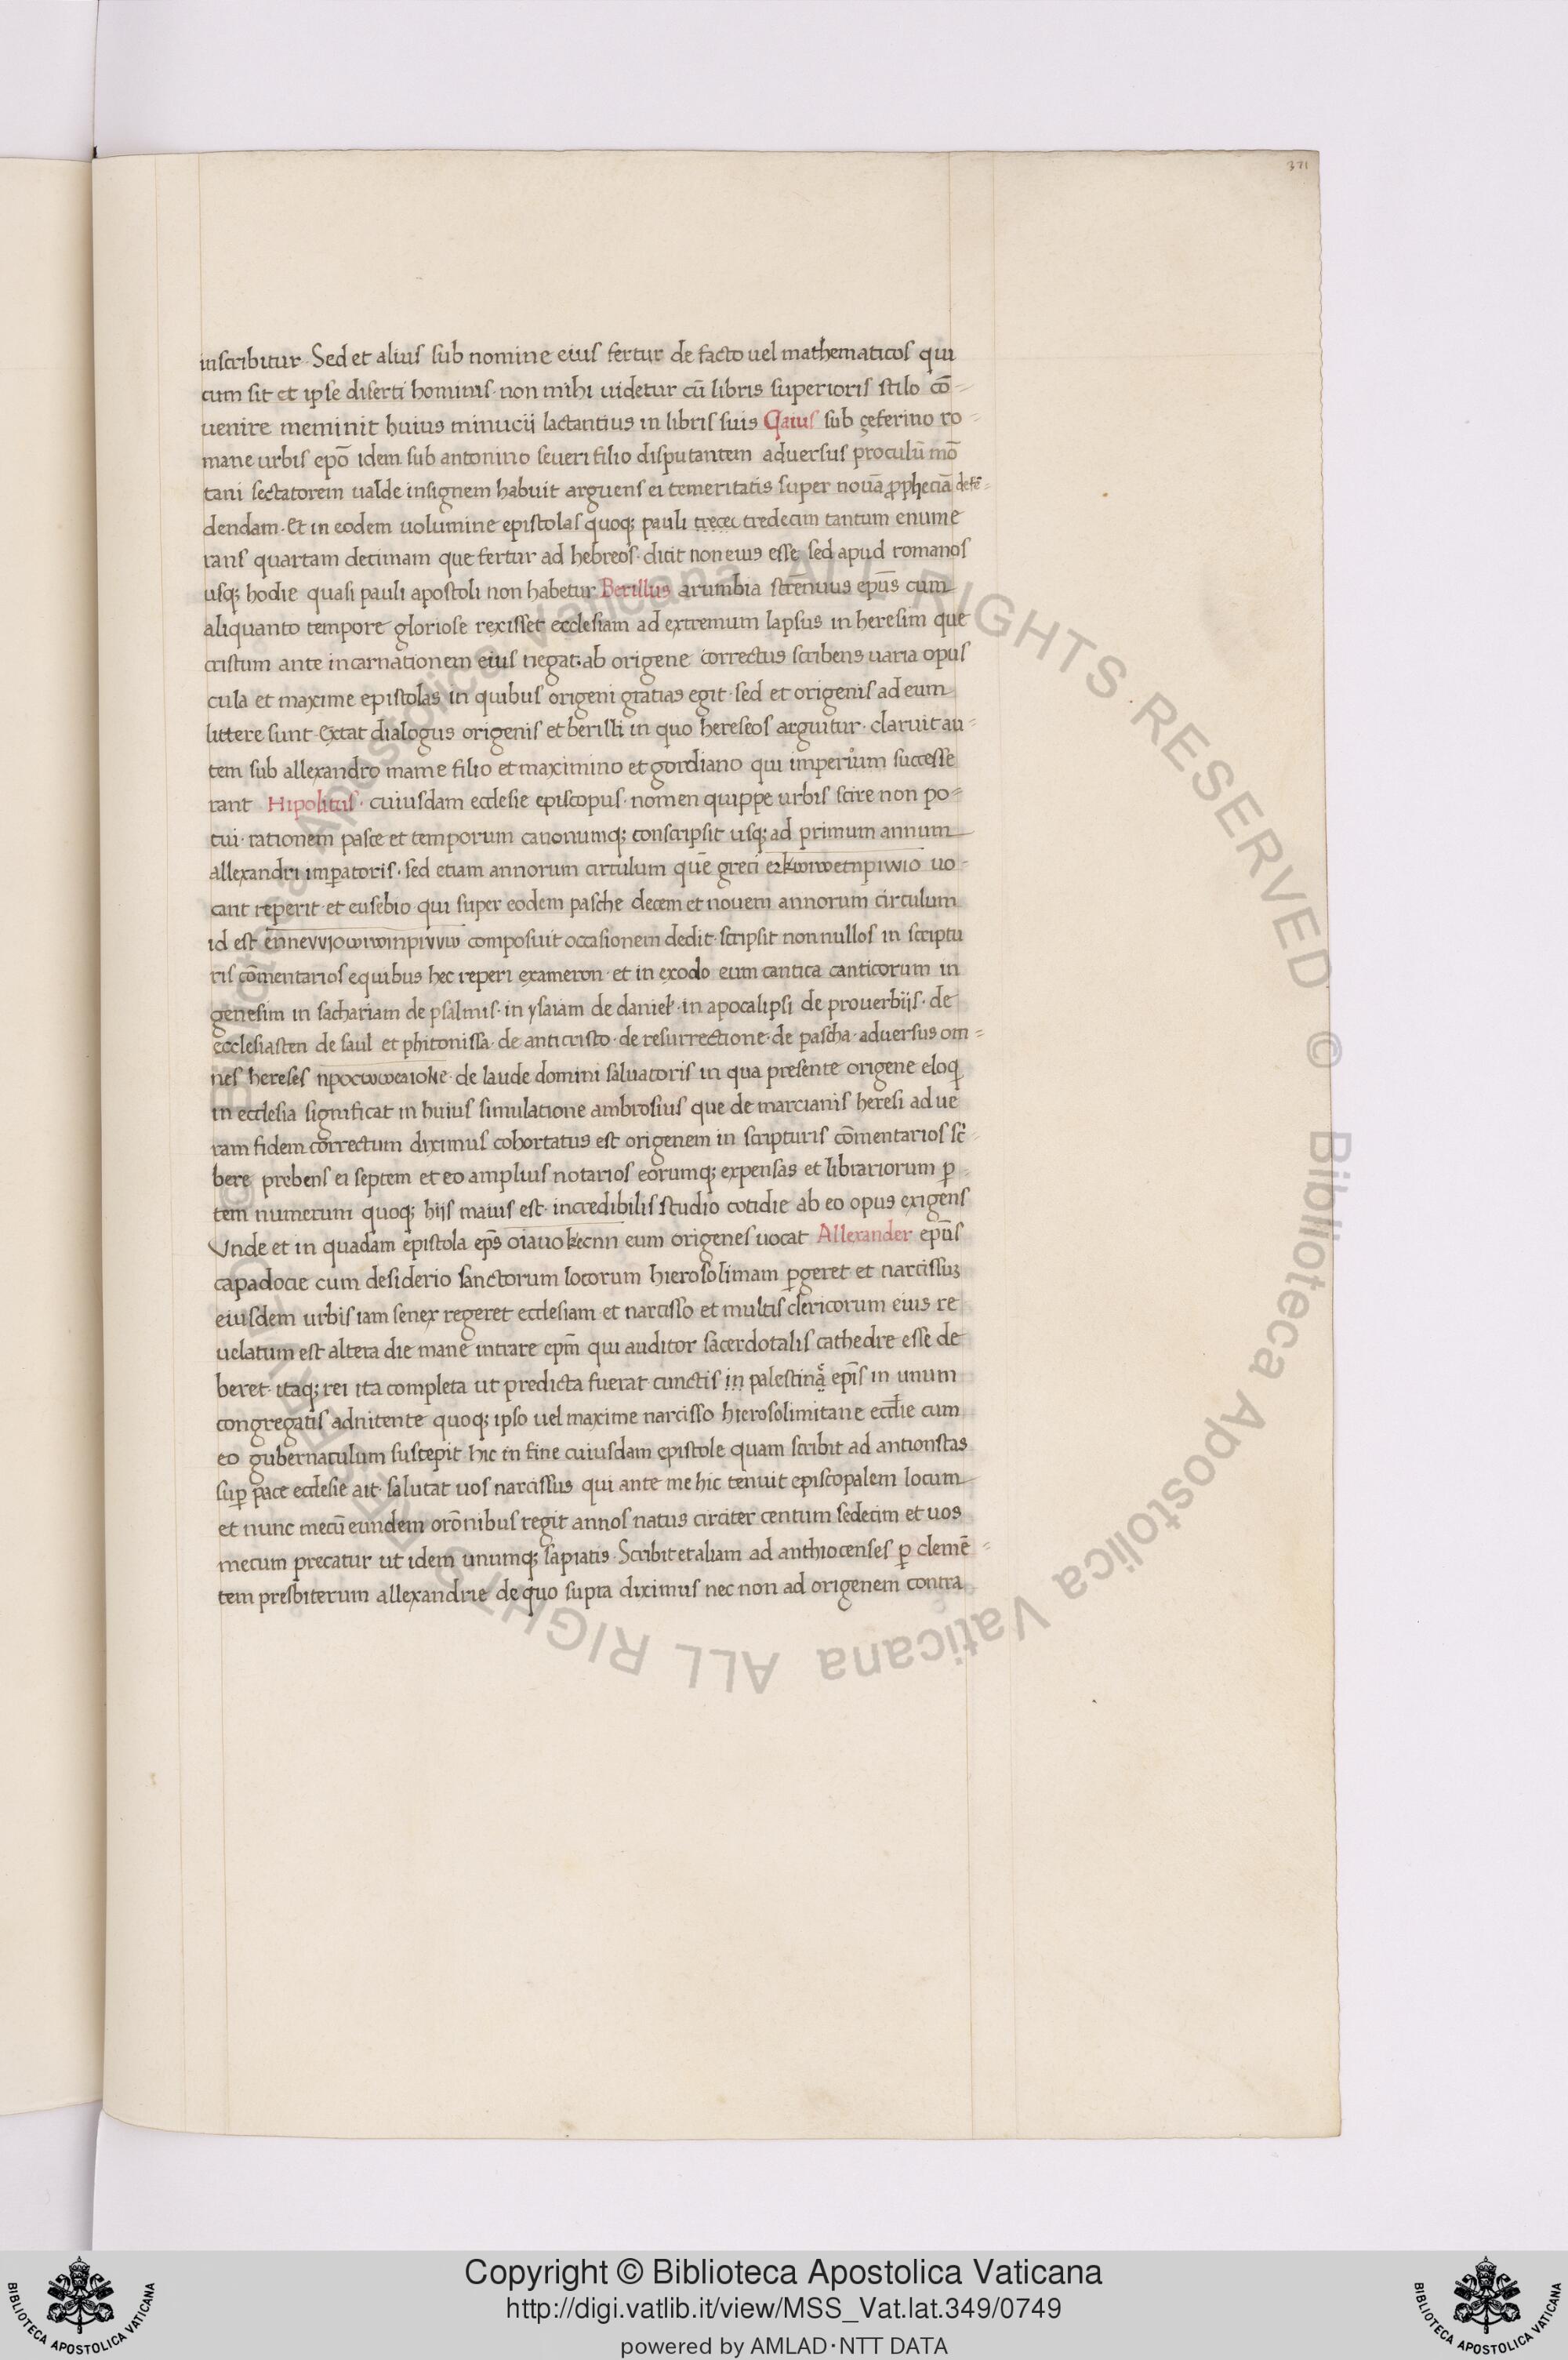 371
inscribitur. Sed et alius sub nomine eius fertur de facto uel mathematicos qui
cum sit et ipse diserti hominis. non mihi uidetur cū libris superioris stilo cō-
uenire meminit huius minucij lactantius in libris suis Gaius sub çeferino ro-
mane urbis epō idem sub antonino seueri filio disputantem aduersus proculū mō
tani sectatorem ualde insignem habuit arguens ei temeritatis super nouā ꝓphetiā defē-
dendam. Et in eodem uolumine epistolas quoqꝫ pauli trecec tredecim tantum enume
rans quartam decimam que fertur ad hebreos. dicit non eius esse sed apud romanos
usqꝫ hodie quasi pauli apostoli non habetur Berillus arumbia strenuus epūs cum
aliquanto tempore gloriose rexisset ecclesiam ad extremum lapsus in heresim que
cristum ante incarnationem eius negat. ab origene correctus scribens uaria opus
cula et maxime epistolas in quibus origeni gratias egit. sed et origenis ad eum
littere sunt. Extat dialogus origenis et berilli in quo hereseos arguitur. claruit au-
tem sub allexandro mame filio et maximino et gordiano qui imperium successe
rant Hipolitus. cuiusdam ecclesie episcopus. nomen quippe urbis scire non po-
tui. rationem pasce et temporum canonumqꝫ conscripsit usqꝫ ad primum annum
allexandri imꝑatoris. sed etiam annorum circulum quē greci uo-
cant reperit. et eusebio qui super eodem pasche decem et nouem annorum circulum
id est composuit occasionem dedit. scripsit nonnullos in scriptu
ris cōmentarios e quibus hec reperi exameron. et in exodo eum cantica canticorum in
genesim in sachariam de psalmis. in ysaiam de daniel. in apocalipsi de prouerbijs. de
ecclesiasten de saul et phitonissa. de anticristo. de resurrectione. de pascha. aduersus om-
nes hereses de laude domini saluatoris in qua presente origene eloq
in ecclesia significat in huius simulatione ambrosius que de marcianis heresi ad ue
ram fidem correctum diximus cohortatus est origenem in scripturis cōmentarios sc̄-
bere prebens ei septem et eo amplius notarios eorumqꝫ expensas et librariorum ꝑ-
tem numerum quoqꝫ hijs maius est. incredibilis studio cotidie ab eo opus exigens
Vnde et in quadam epistola ep̄s eum origenes uocat Allexander epūs
capadocie cum desiderio sanctorum locorum hierosolimam ꝑgeret et narcissuꝫ
eiusdem urbis iam senex regeret ecclesiam et narcisso et multis clericorum eius re
uelatum est altera die mane intrare ep̄m qui auditor sacerdotalis cathedre esse de
beret. itaqꝫ rei ita completa ut predicta fuerat cunctis in palestina ep̄is in unum
congregatis adnitente quoqꝫ ipso uel maxime narcisso hierosolimitane eccl̄ie cum
eo gubernaculum suscepit. hic in fine cuiusdam epistole quam scribit ad antionstas
suꝑ pace ecclesie ait. salutat uos narcissus qui ante me hic tenuit episcopalem locum
et nunc mecū eundem orōnibus regit annos natus circiter centum sedecim et uos
mecum precatur ut idem unumqꝫ sapiatis. Scribit et aliam ad anthiocenses ꝑ clemē-
tem presbiterum allexandrie de quo supra diximus nec non ad origenem contra
© Biblioteca Apostolica Vaticana ALL RIGHTS RESERVED © Biblioteca Apostolica Vaticana ALL RIGHTS RESERVED
Copyright © Biblioteca Apostolica Vaticana
http://digi.vatlib.it/view/MSS_Vat.lat.349/0749
powered by AMLAD·NTT DATA
BIBLIOTECA APOSTOLICA VATICANA
BIBLIOTECA APOSTOLICA VATICANA